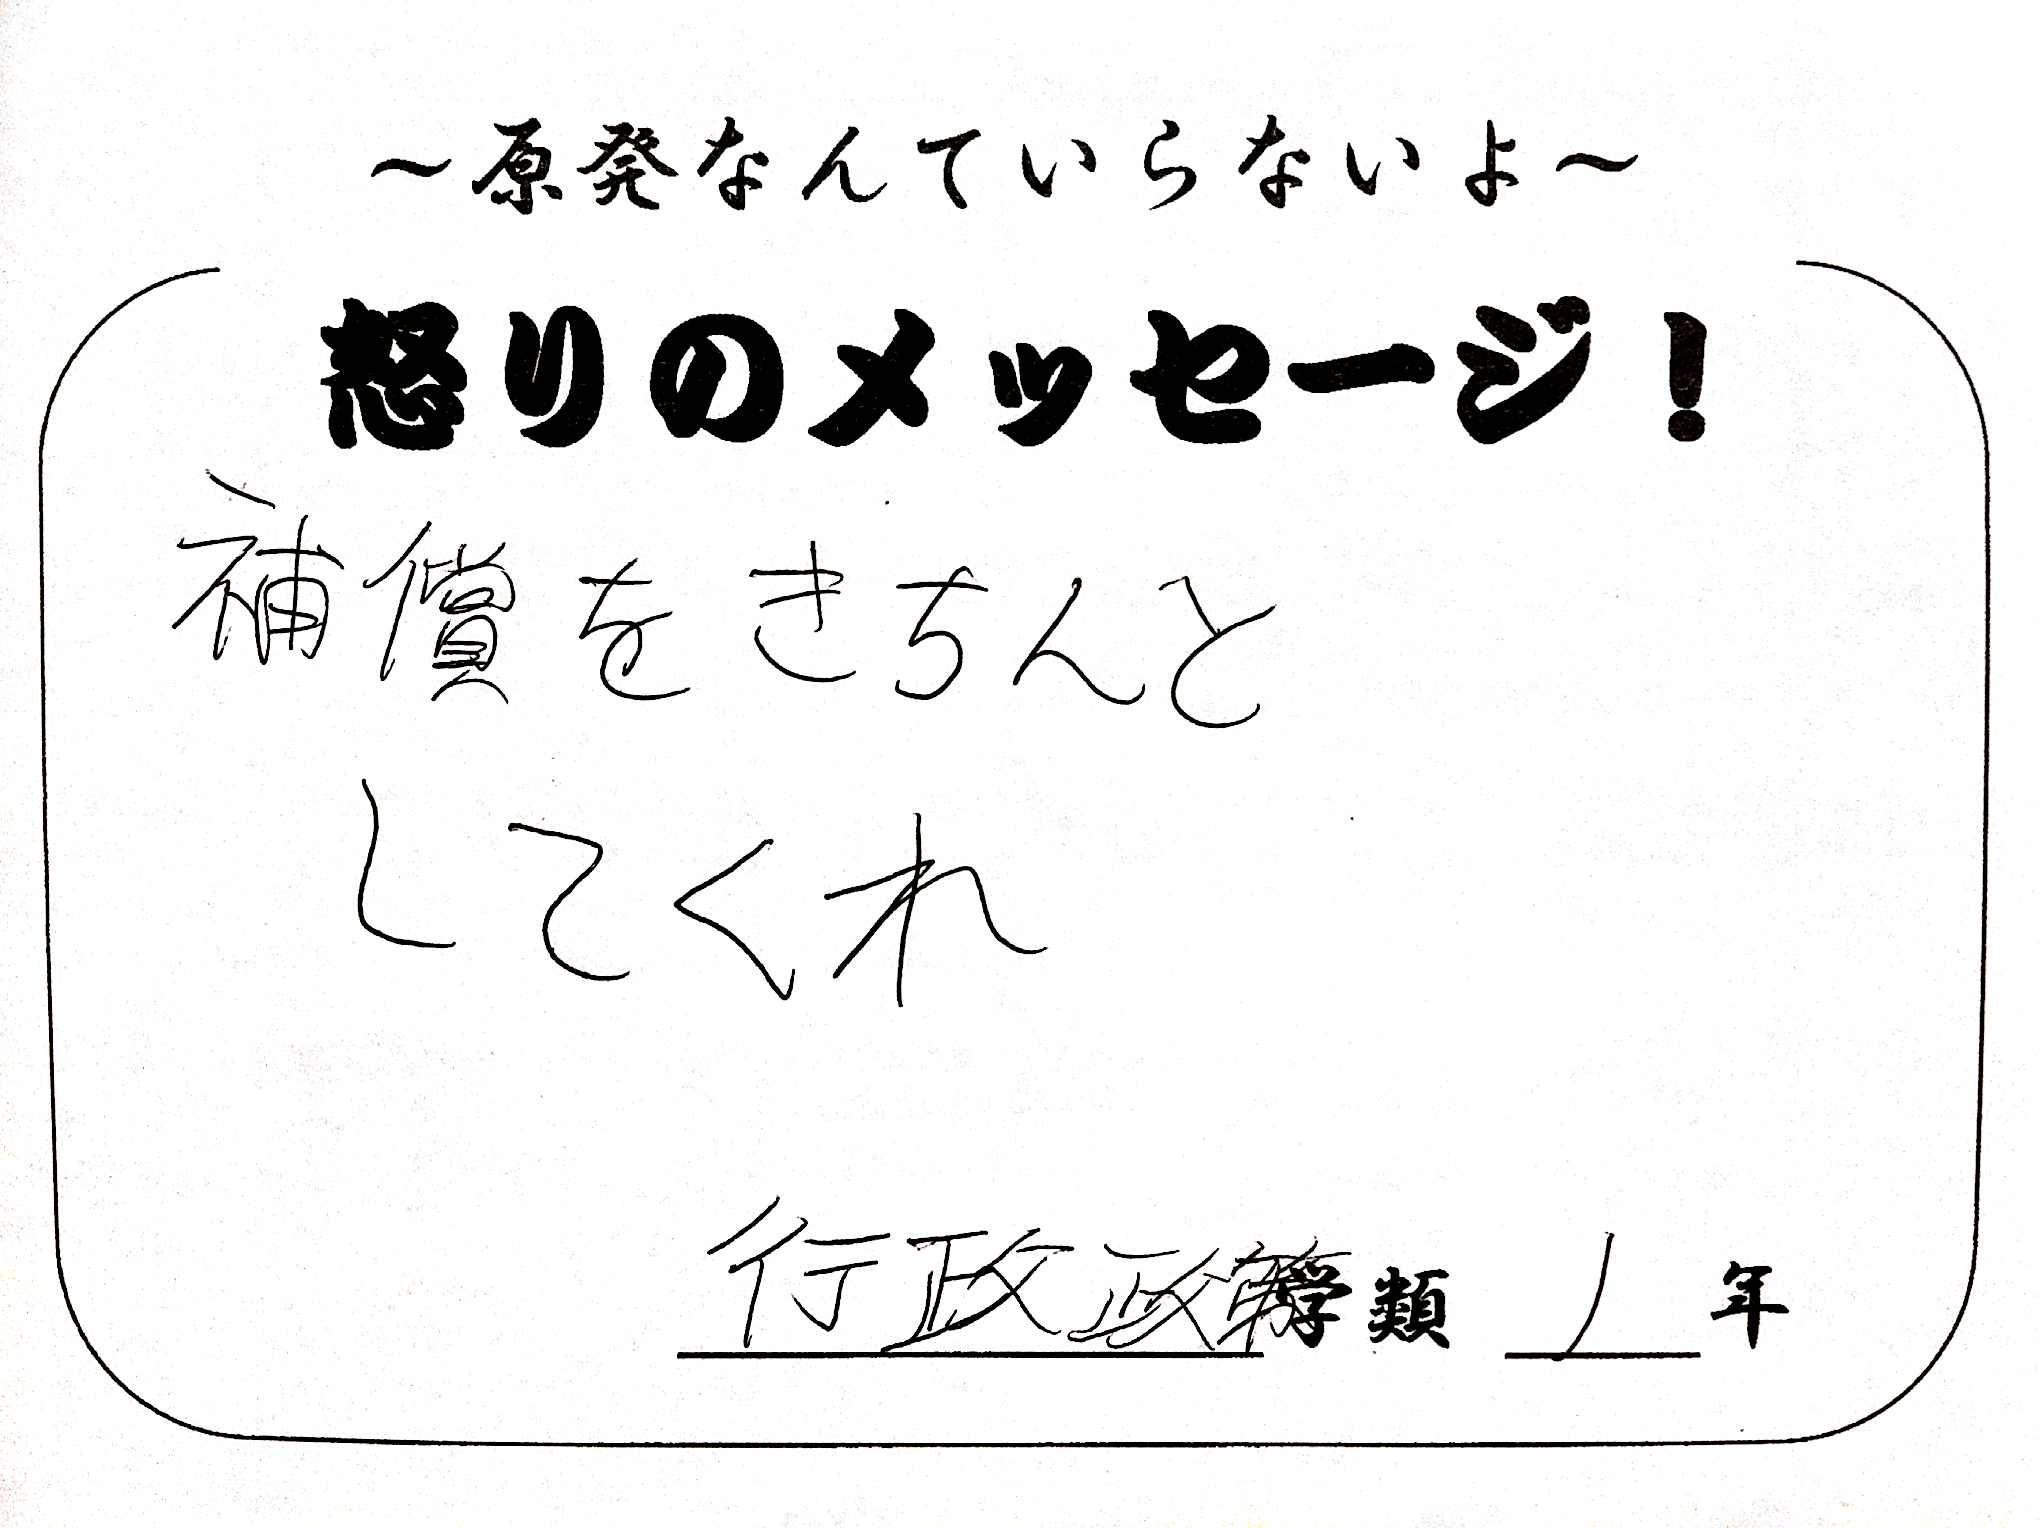 ～原発なんていらないよ～
怒りのメッセージ！
補償をきちんと
してくれ
行政政策学類 1 年